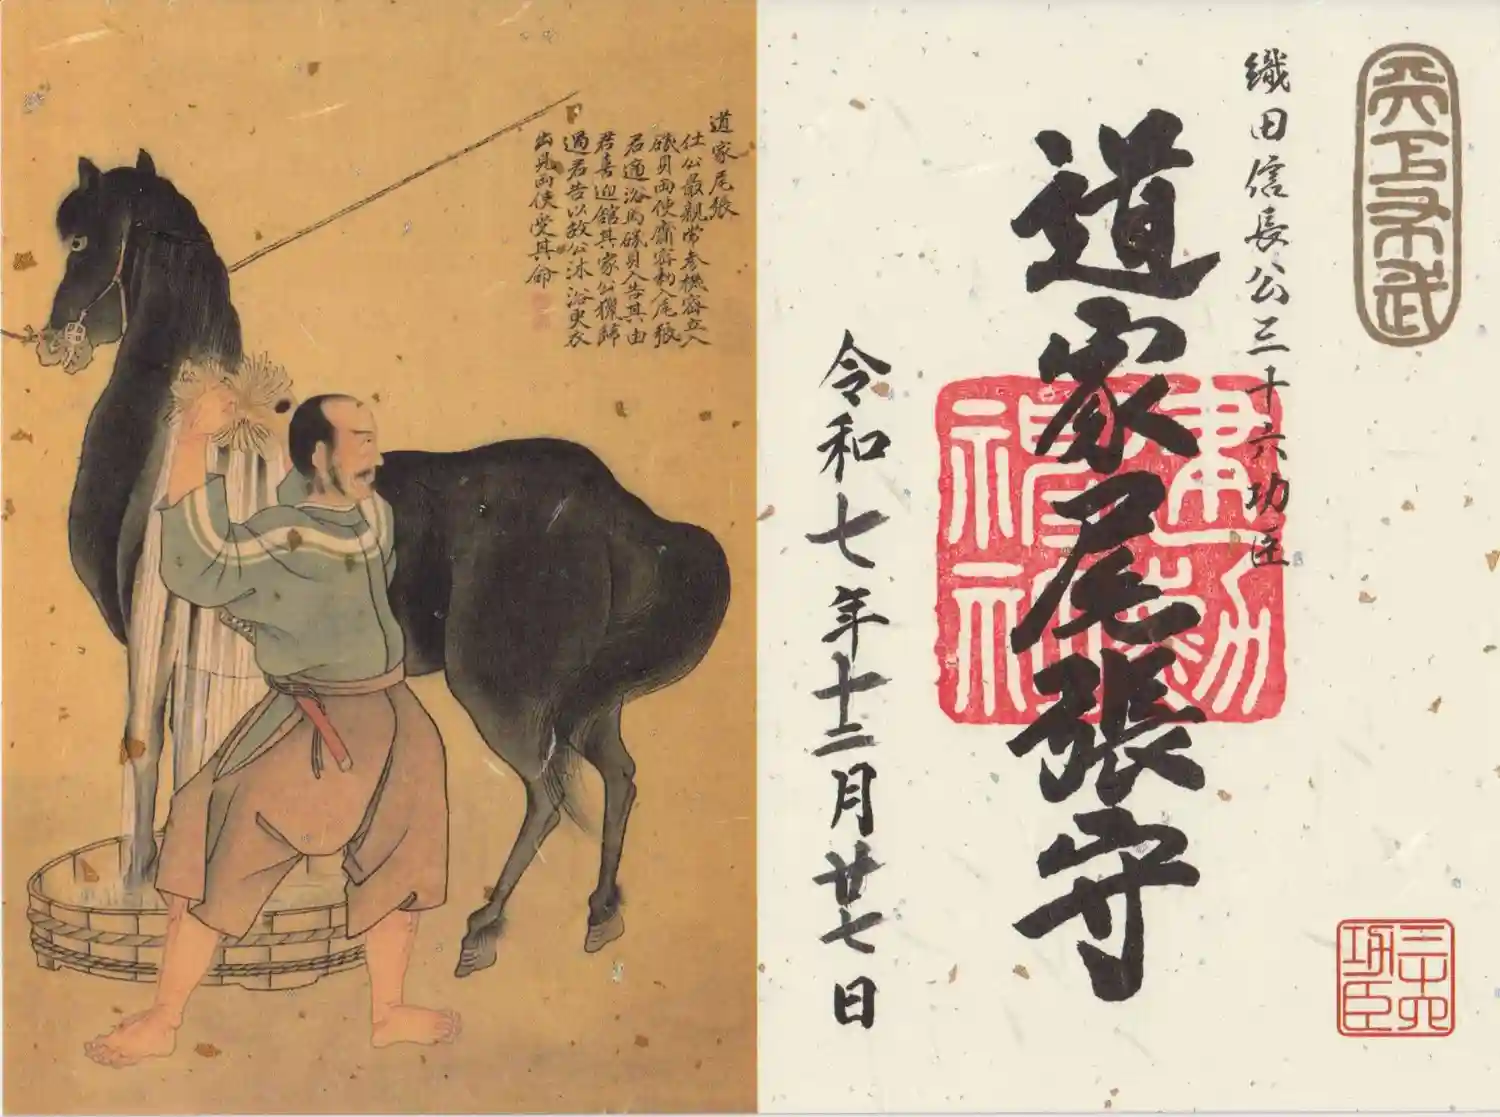 天下布武
織田信長公三十六功臣
三十六
功臣
道家尾張守
建勲
神社
令和七年十二月廿七日
道家尾張
仕公最親常参機密立入
磯貝両使齎密勅入尾張
君適浴馬磯貝入告其由
君喜迎館其家公猟歸
過君告以故公沐浴更衣
出見両使受其命